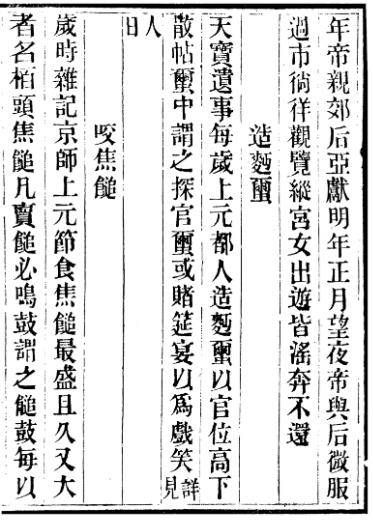 年帝親郊后亞獻明年正月望夜帝與后微服
過市徜徉觀覽縱宮女出遊皆淫奔不還
造麪璽
天寶遺事每歲上元都人造麪璽以官位高下
散帖璽中謂之探官璽或賭筵宴以爲戲笑詳見
人日
咬焦䭔
歲時雜記京師上元節食焦䭔最盛且久又大
者名柏頭焦䭔凡賣䭔必鳴鼓謂之䭔鼓每以